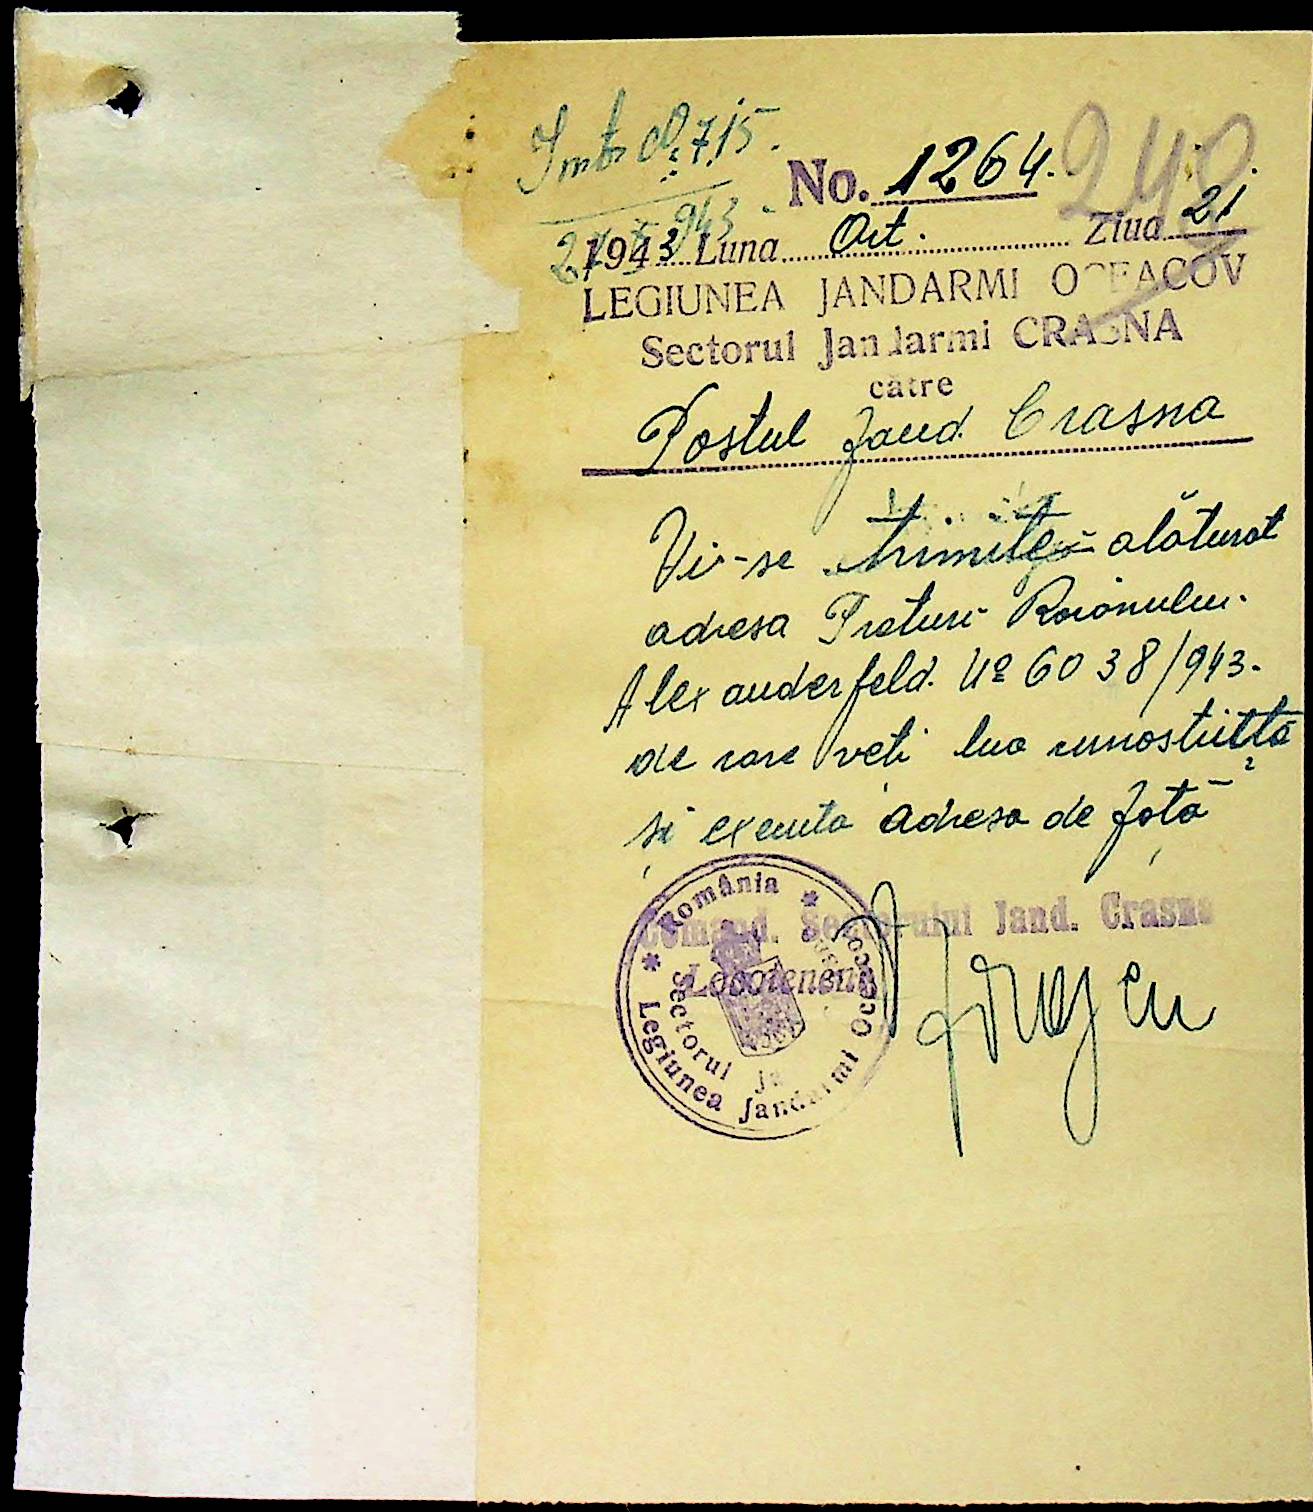 Intr № 715.
2 X 943
240
No. 1264.
1943 Luna Oct. Ziua 21
LEGIUNEA JANDARMI OCEACOV
Sectorul Jandarmi CRASNA
către
Postul Jand. Crasna
Vi-se trimite alăturat
adresa Preturi Raionului
Alexanderfeld. № 6038/943.
de care veti lua cunostiittă
și executa adresa de fată
Comand. Sectorului Jand. Crasna
Locotenent
* România *
Legiunea Jandarmi Oceacov
Sectorul